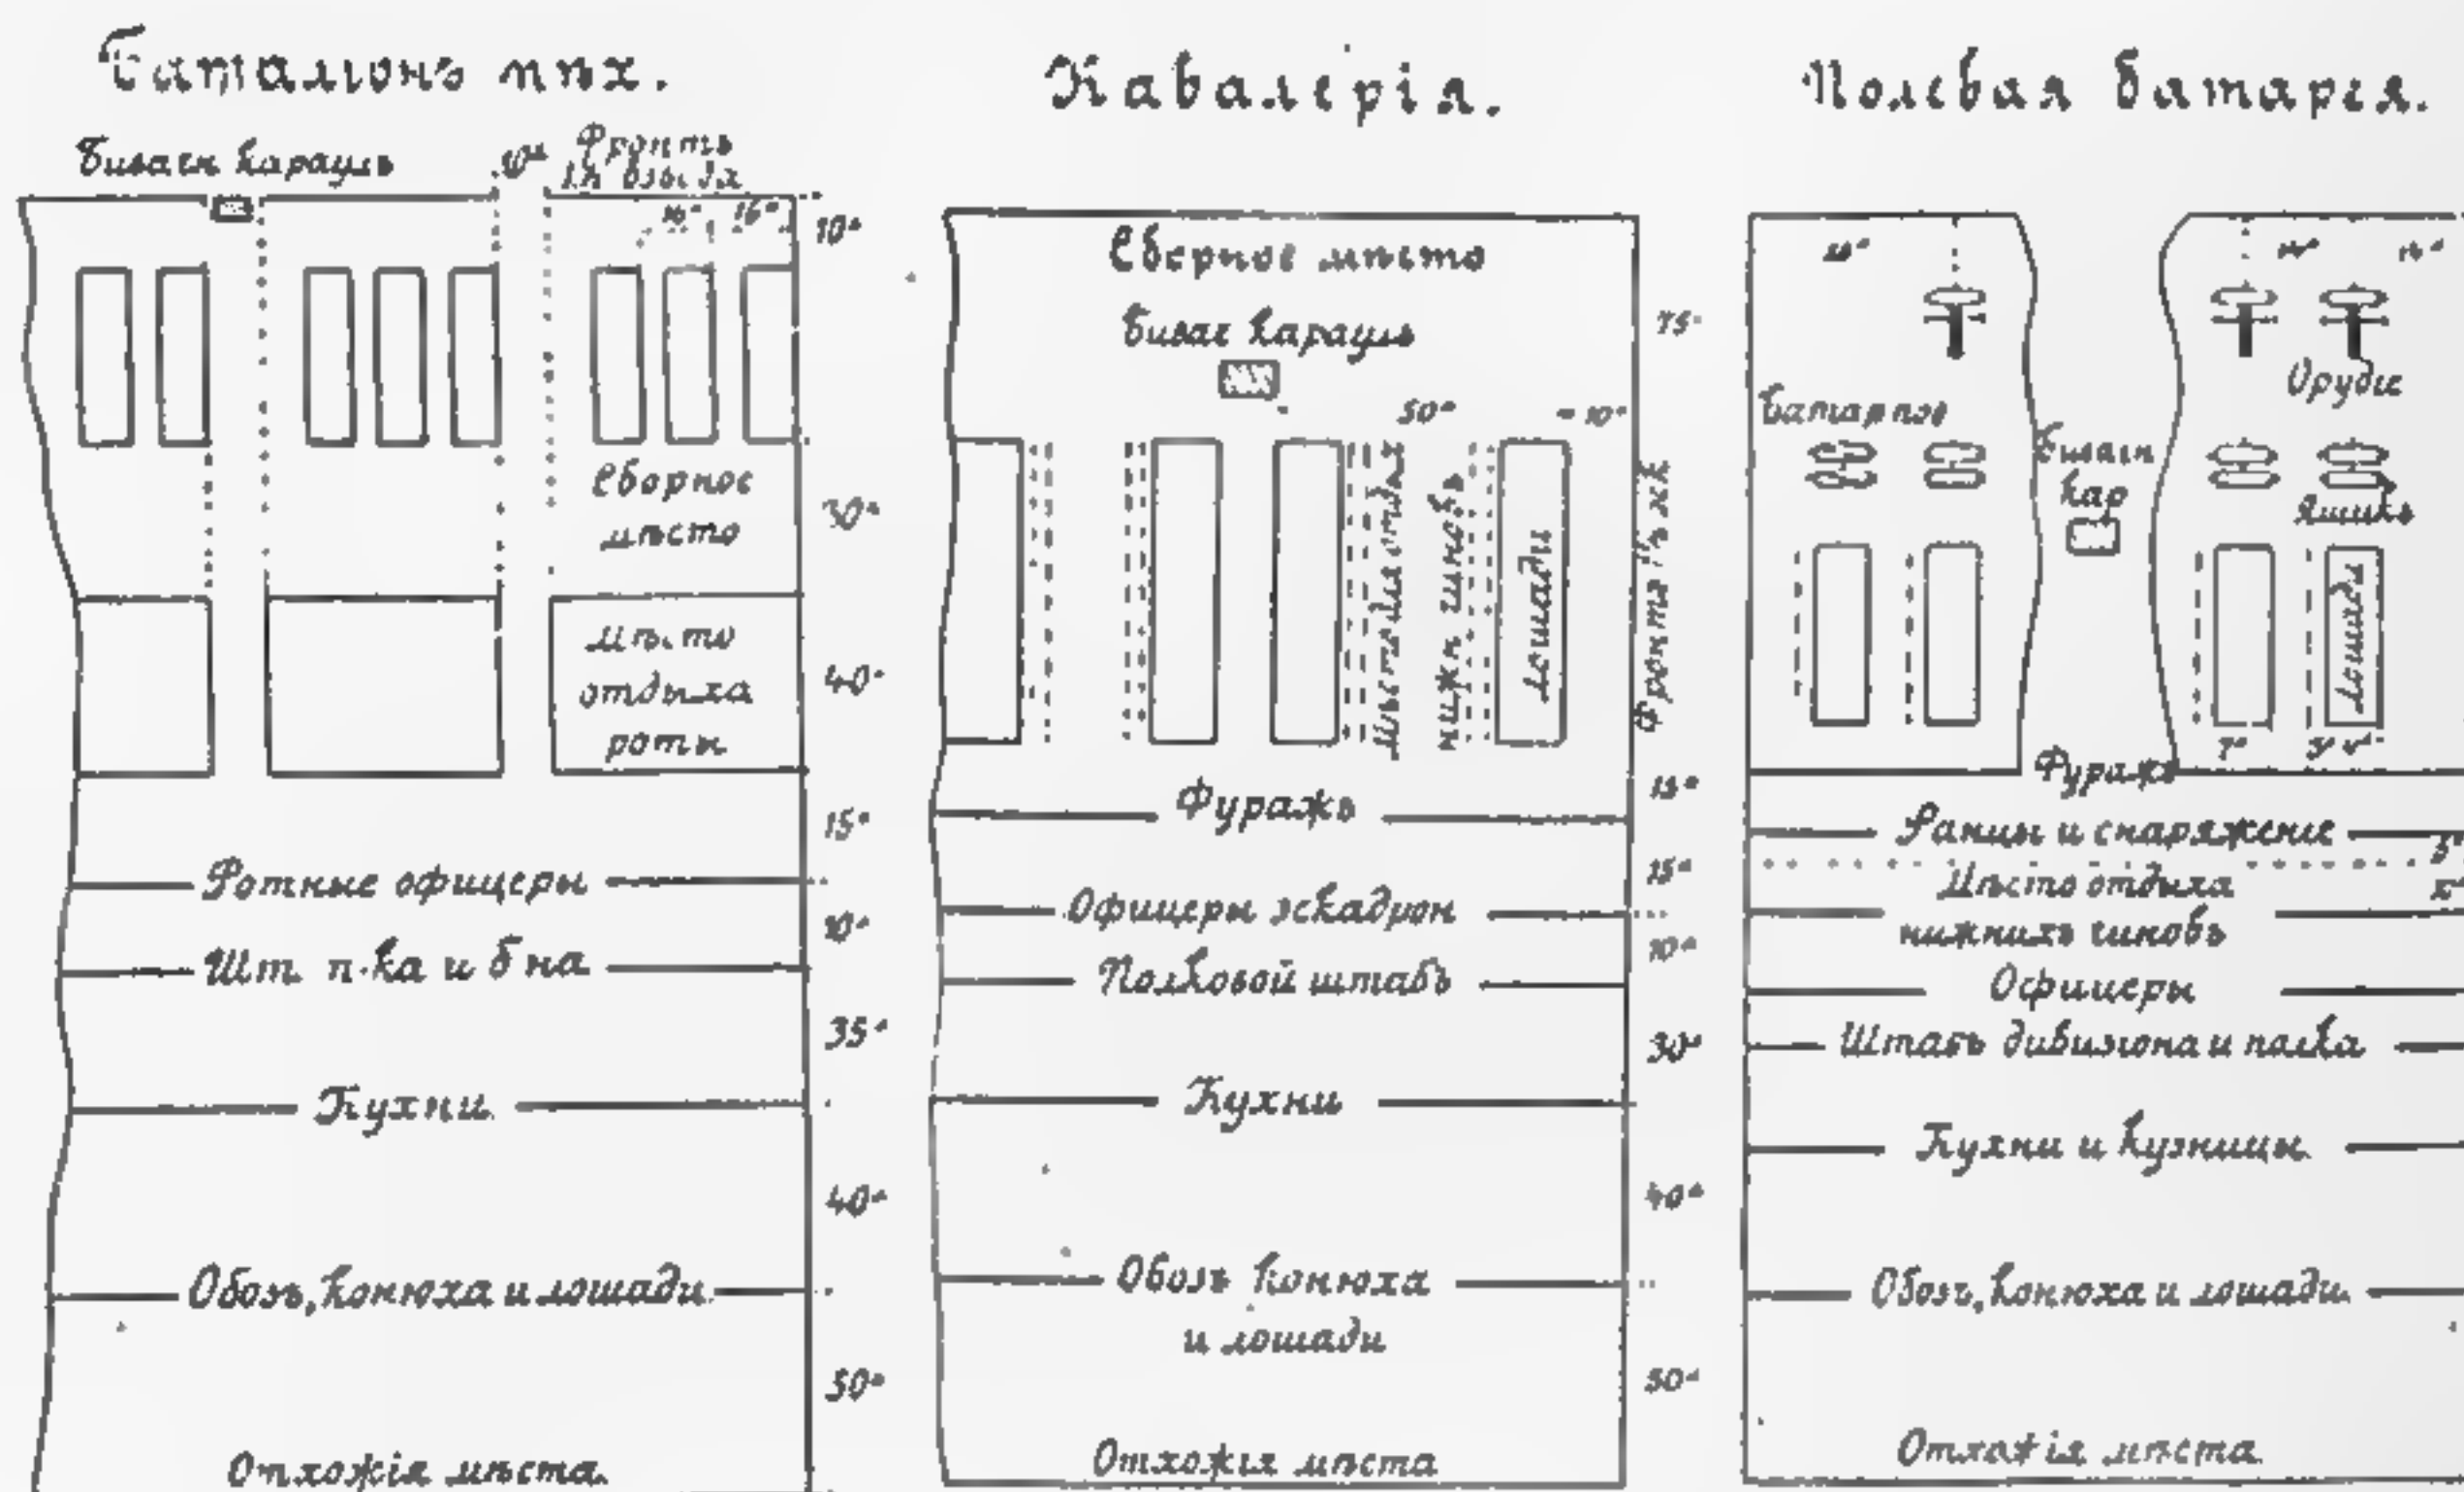 Баталіонъ пѣх.
Бивачн караулъ
10ˣ
Фронтъ
взвода
16ˣ 16ˣ
10ˣ
Сборное
мѣсто
30ˣ
Мѣсто
отдыха
роты
40ˣ
15ˣ
Ротные офицеры
10ˣ
Шт. п-ка и б-на
35ˣ
Кухни
40ˣ
Обозъ, конюха и лошади.
50ˣ
Отхожія мѣста.
Кавалерія.
Сборное мѣсто
Бивач караулъ
75ˣ
50ˣ
10ˣ
Мѣсто для отдых
нижн чиновъ
Лошади
Фронтъ
15ˣ
Фуражъ
15ˣ
Офицеры эскадрон
10ˣ
Полковой штабъ
30ˣ
Кухни
40ˣ
Обозъ конюха
и лошади
50ˣ
Отхожія мѣста
Полевая батарея.
14ˣ 14ˣ
Орудіе
Батарное
Бивачн
кар
Ящикъ
Лошади
Фуражъ
Ранцы и снаряженіе
Мѣсто отдыха
нижнихъ чиновъ
Офицеры
Штабъ дивизіона и полка
Кухни и кузницы.
Обозъ, конюха и лошади.
Отхожія мѣста.